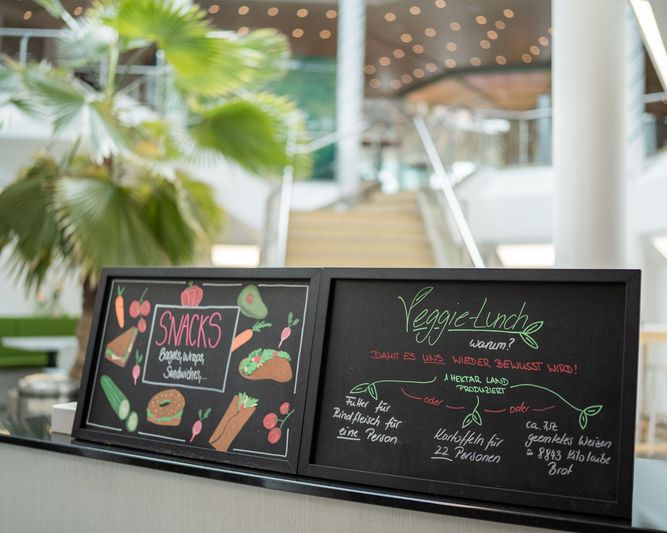 SNACKS
Bagels, Wraps,
Sandwiches...
Veggie-Lunch
warum?
DAMIT ES UNS WIEDER BEWUSST WIRD!
1 HEKTAR LAND
PRODUZIERT
oder
oder
Futter für
Rindfleisch für
eine Person
Kartoffeln für
22 Personen
ca. 7,5t
geerntetes Weizen
8843 Kilo Laibe
Brot